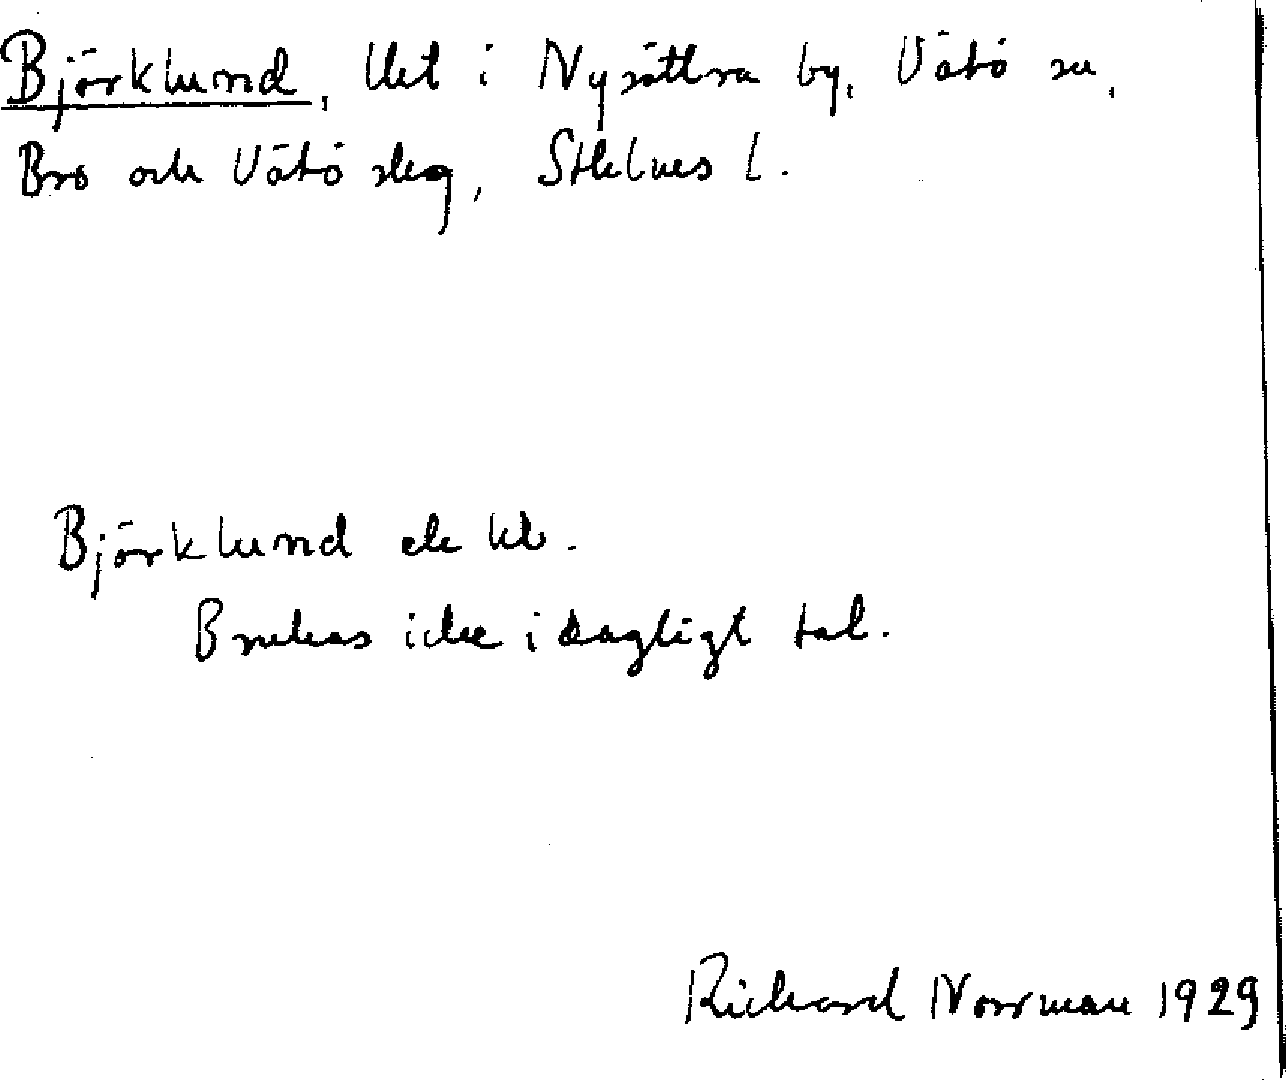 Björklund, Uet i Nysättra by, Vätö sn,
Bro och Vätö skg, Sthlms l.
Björklund
Brukas icke i dagligt tal.
Richard Norrman 1929